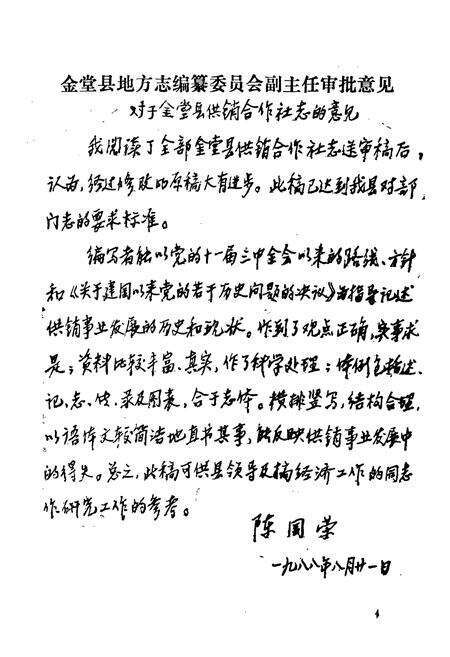 金堂县地方志编纂委员会副主任审批意见
对于金堂县供销合作社志的意见
我阅读了全部金堂县供销合作社志送审稿后,
认为,经过修改的原稿大有进步。此稿已达到我县对部
门志的要求标准。
编写者能以党的十一届三中全会以来的路线、方针
和《关于建国以来党的若干历史问题的决议》为指导记述
供销事业发展的历史和现状。作到了观点正确,实事求
是;资料比较丰富、真实,作了科学处理;体例包括述、
记、志、传、录及图表,合于志体。横排竖写,结构合理,
以语体文较简洁地直书其事,能反映供销事业发展中
的得失。总之,此稿可供县领导及搞经济工作的同志
作研究工作的参考。
陈国荣
一九八八年八月廿一日
4